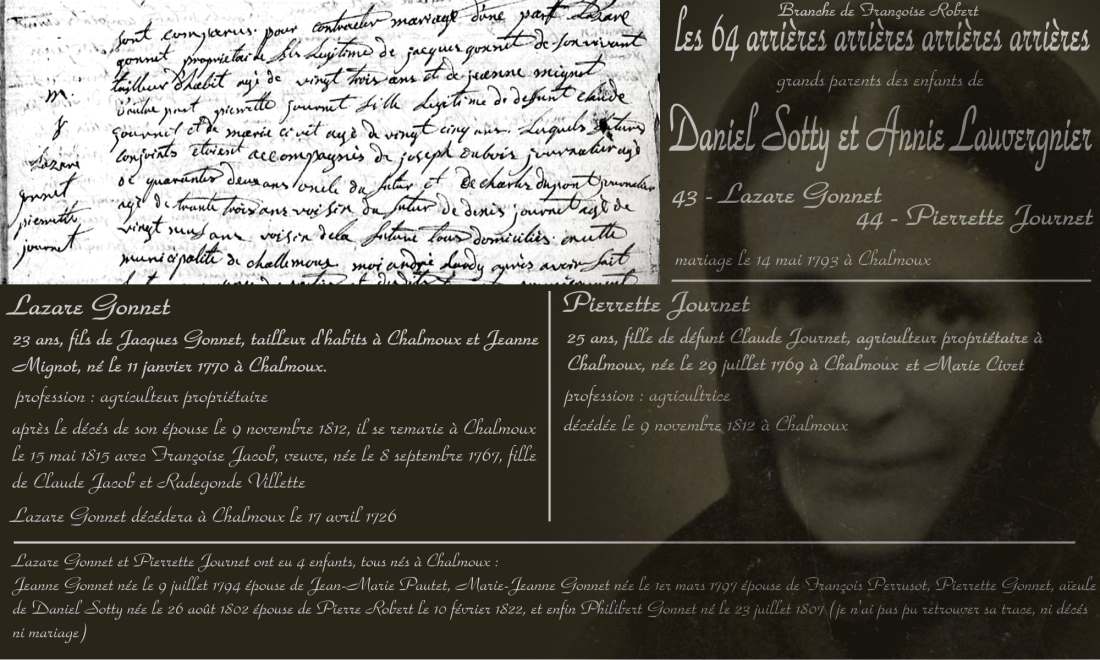 sont comparus pour contracter mariage d'une part Lazare
gonnet proprietaire fils legitime de jacques gonnet de son vivant
tailleur d'habit agé de vingt trois ans et de jeanne mignot
d'autre part pierrette journet fille legitime de defunt claude
journet et de marie civit agé de vingt cinq ans. Lesquels futurs
conjoints etoient accompagnés de joseph dubois journalier agé
de quarante deux ans oncle du futur et de charles dupont journalier
agé de trente trois ans voisin du futur de denis journet agé de
vingt neuf ans voisin de la future tous domiciliés en cette
municipalité de challemoux. moi andré
après avoir fait
Lazare
gonnet
pierrette
journet
Branche de Françoise Robert
les 64 arrières arrières arrières arrières
grands parents des enfants de
Daniel Sotty et Annie Lauvergnier
43 - Lazare Gonnet
44 - Pierrette Journet
mariage le 14 mai 1793 à Chalmoux
Lazare Gonnet
23 ans, fils de Jacques Gonnet, tailleur d'habits à Chalmoux et Jeanne
Mignot, né le 11 janvier 1770 à Chalmoux.
profession : agriculteur propriétaire
après le décés de son épouse le 9 novembre 1812, il se remarie à Chalmoux
le 15 mai 1815 avec Françoise Jacob, veuve, née le 8 septembre 1767, fille
de Claude Jacob et Radegonde Villette
Lazare Gonnet décédera à Chalmoux le 17 avril 1726
Pierrette Journet
25 ans, fille de défunt Claude Journet, agriculteur propriétaire à
Chalmoux, née le 29 juillet 1769 à Chalmoux et Marie Civet
profession : agricultrice
décédée le 9 novembre 1812 à Chalmoux
Lazare Gonnet et Pierrette Journet ont eu 4 enfants, tous nés à Chalmoux :
Jeanne Gonnet née le 9 juillet 1794 épouse de Jean-Marie Pautet, Marie-Jeanne Gonnet née le 1er mars 1797 épouse de François Perrusot, Pierrette Gonnet, aïeule
de Daniel Sotty née le 26 août 1802 épouse de Pierre Robert le 10 février 1822, et enfin Philibert Gonnet né le 23 juillet 1807 (je n'ai pas pu retrouver sa trace, ni décés
ni mariage)